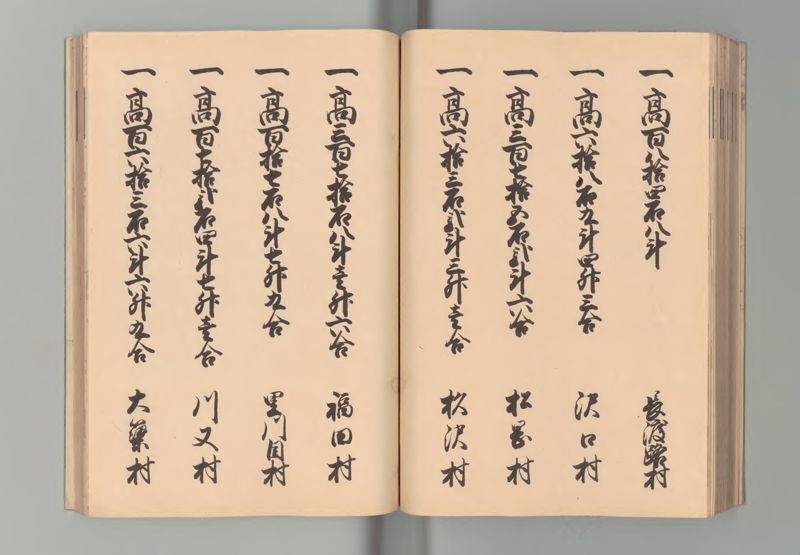 一高百八拾四石八斗 長渡路村
一高六拾八石九斗四升三合 沢口村
一高三百七拾五石弐斗六合 松岡村
一高六拾三石弐斗三升壱合 松沢村
一高三百七拾石八斗壱升六合 福田村
一高百拾七石八斗七升九合 黒川目村
一高百七拾弐石四斗七升壱合 川又村
一高百六拾三石六斗六升九合 大巣村